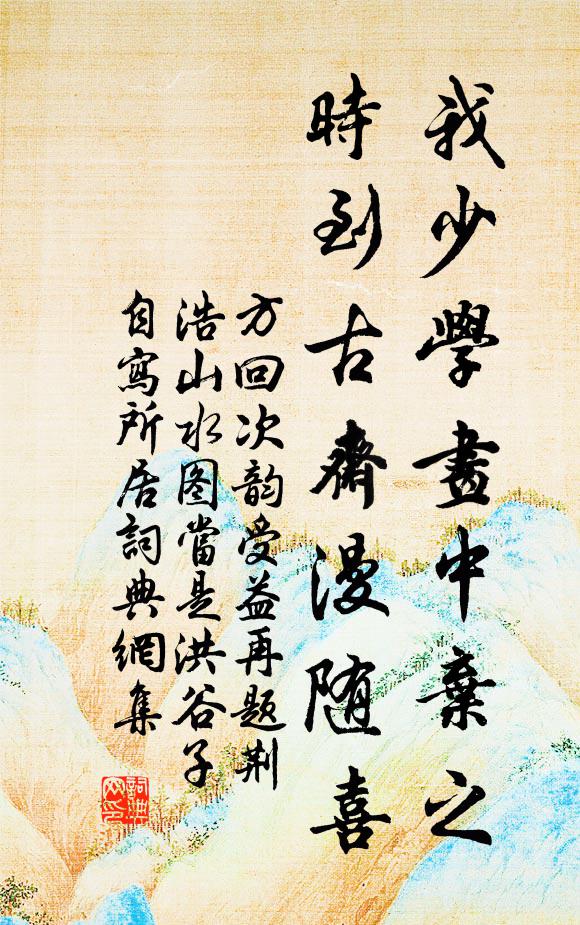 我少學畫中棄之
時到古齋漫随喜
方回次韵受益再题荆
浩山水图當是洪谷子
自寫所居詞典網集